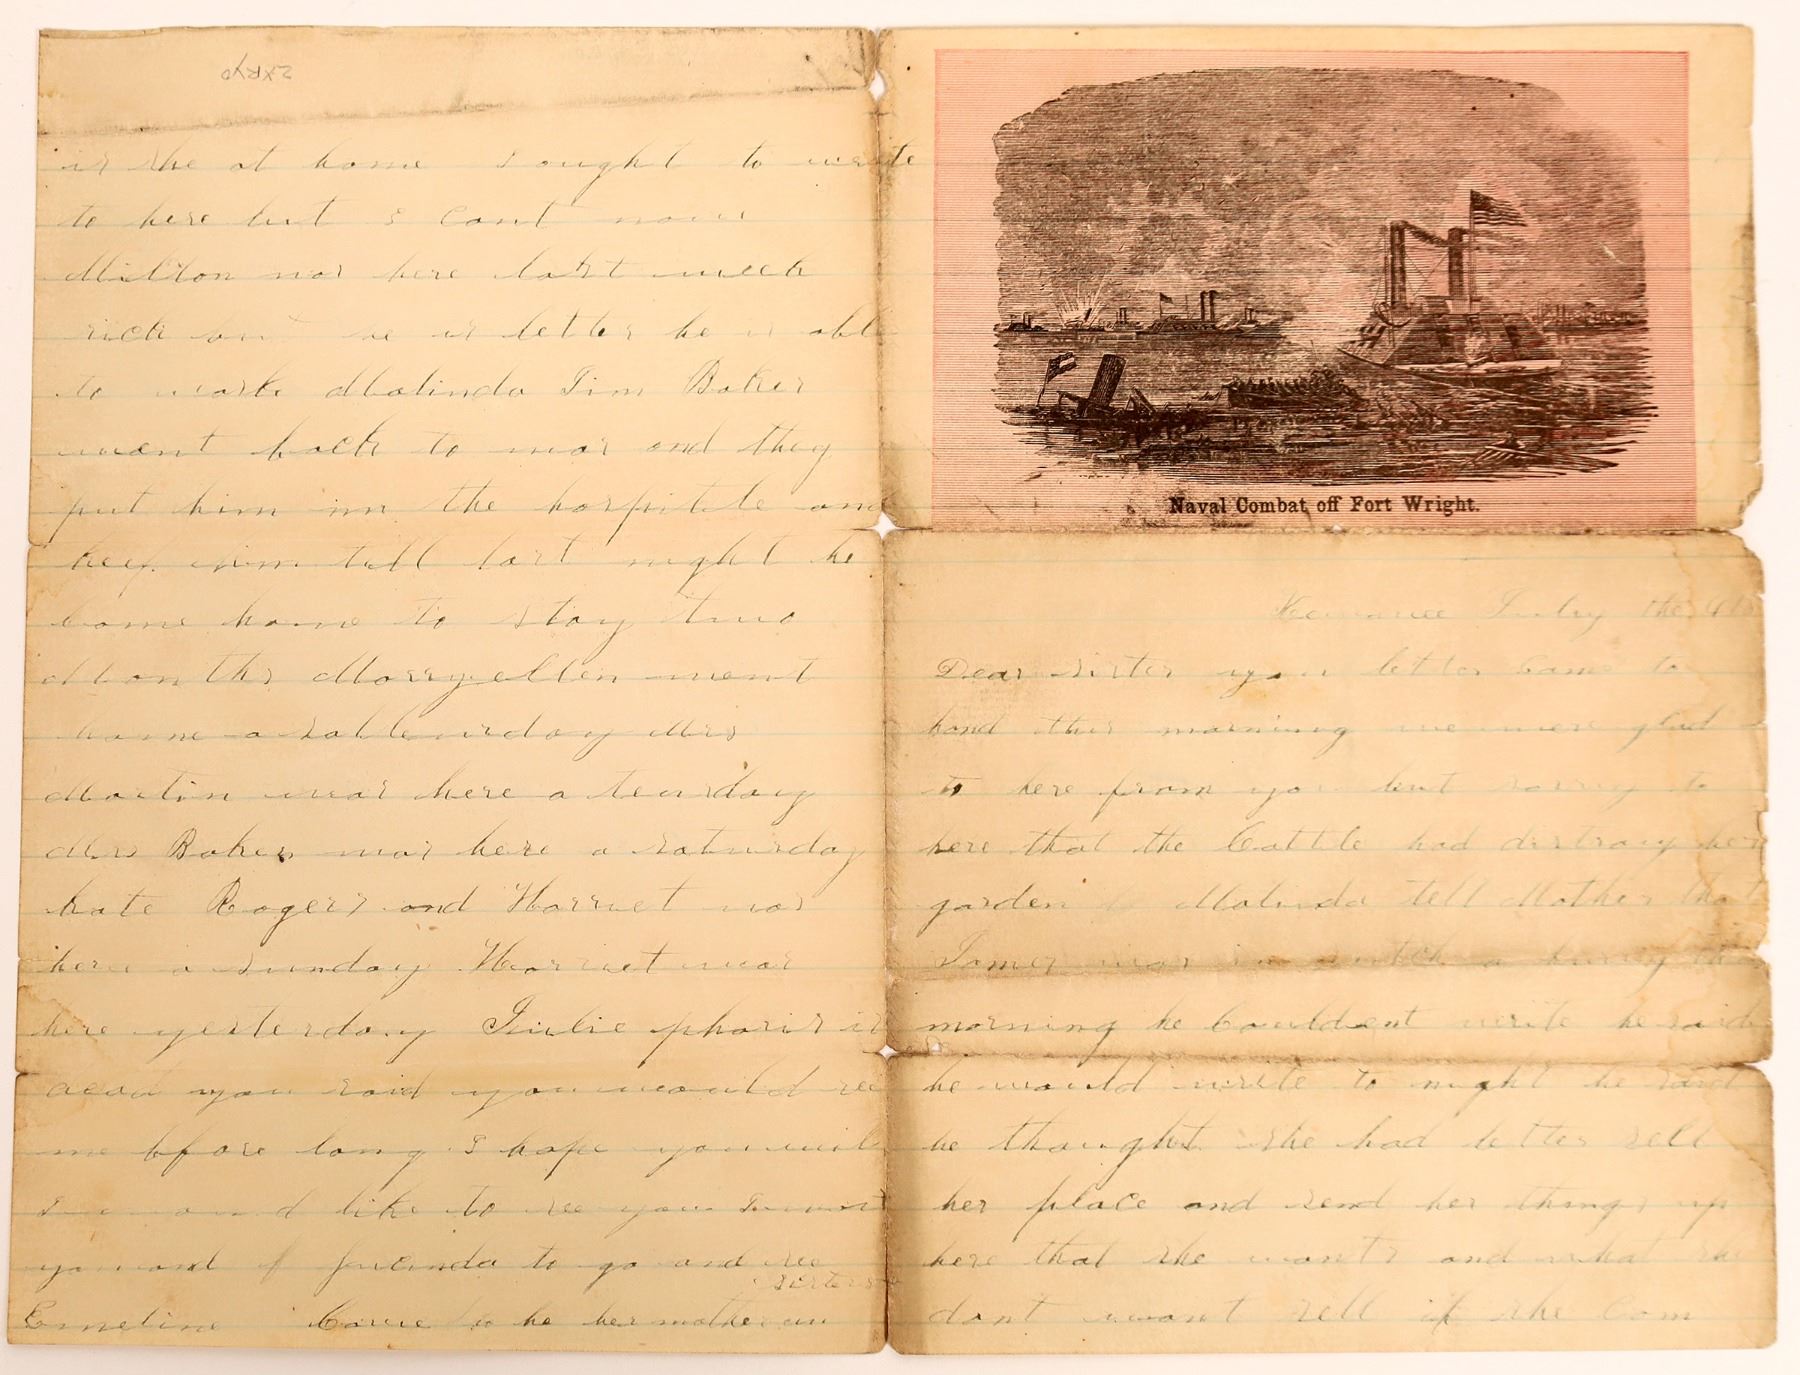 Naval Combat off Fort Wright.
Kewanee July the 9th
Dear sister you letter Came to
hand this morning we were glad
to here from you but sorry to
here that the Cattle had distrouy her
garden Malinda tell Mother that
James was in sutch a hurry this
morning he Couldent write he said
he would write to night he said
he thought she had better sell
her place and send her things up
here that she wants and what she
dont want sell if she Com
2XRyd
is she at home I ought to write
to here but I Cant now
Milton was here last week
sick but he is better he is able
to work Malinda Tim Baker
went back to war and they
put him inn the hospitle and
keep him till last night he
Come home to stay two
Months Marryellen went
home a satturday Mrs
Martin was here a teusday
Mrs Baker was here a saturday
kate Rogers and Harriet was
here a sunday Harriet was
here yesterday Julie pharis is
dead you said you would see
me bfore long I hope you will
I would like to see you I want
you and Jucinda to go and see
sister
Emeline Carve to be her mother in